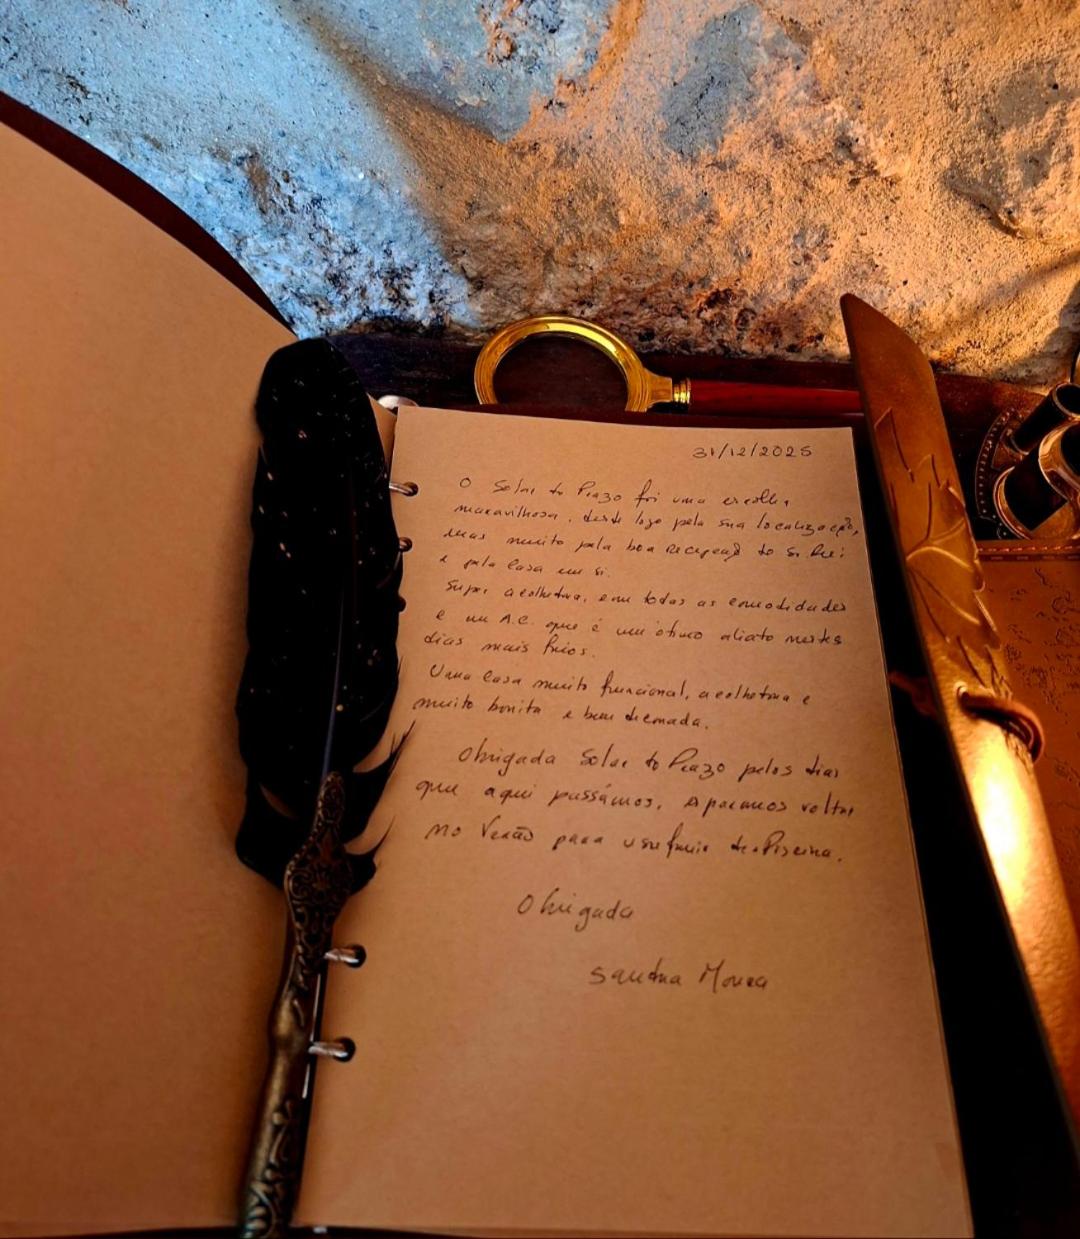 31/12/2025
O Solar do Prazo foi uma escolha
maravilhosa, desde logo pela sua localização,
mas muito pela boa recepção do Sr. Rui
e pela casa em si.
Super acolhedora, com todas as comodidades
e um A.C. que é um ótimo aliado nestes
dias mais frios.
Uma casa muito funcional, acolhedora e
muito bonita e bem decorada.
Obrigada Solar do Prazo pelos dias
que aqui passámos. Esperamos voltar
no Verão para usufruir da Piscina.
Obrigada
Sandra Moura